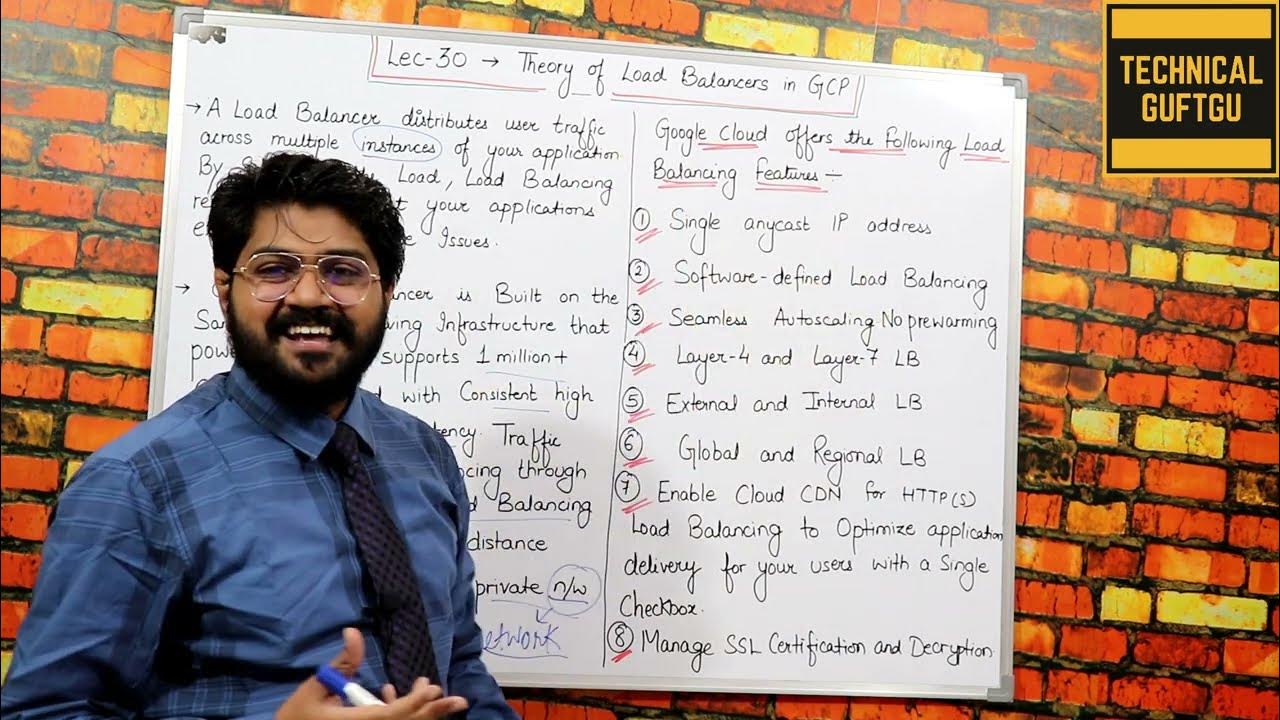 Lec-30 → Theory of Load Balancers in GCP
→ A Load Balancer distributes user traffic
across multiple instances of your application.
By Load, Load Balancing
your applications
Issues.
→ is Built on the
Infrastructure that
supports 1 million+
with Consistent high
Traffic
through
Balancing
distance
private n/w
Google Cloud offers the Following Load
Balancing Features :-
① Single anycast IP address
② Software-defined Load Balancing
③ Seamless Autoscaling. No prewarming
④ Layer-4 and Layer-7 LB
⑤ External and Internal LB
⑥ Global and Regional LB
⑦ Enable Cloud CDN for HTTP(S)
Load Balancing to Optimize application
delivery for your users with a Single
Checkbox.
⑧ Manage SSL Certification and Decryption.
TECHNICAL
GUFTGU